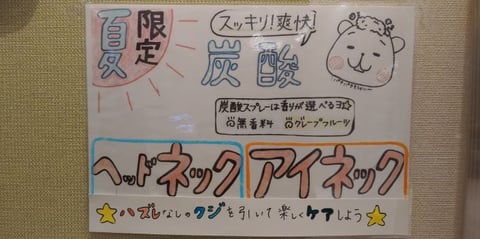 夏
限定
スッキリ!爽快!
炭酸
炭酸スプレーは香りが選べるヨ☆
無香料 グレープフルーツ
ヘッドネック アイネック
☆ハズレなしのクジを引いて楽しくケアしよう☆